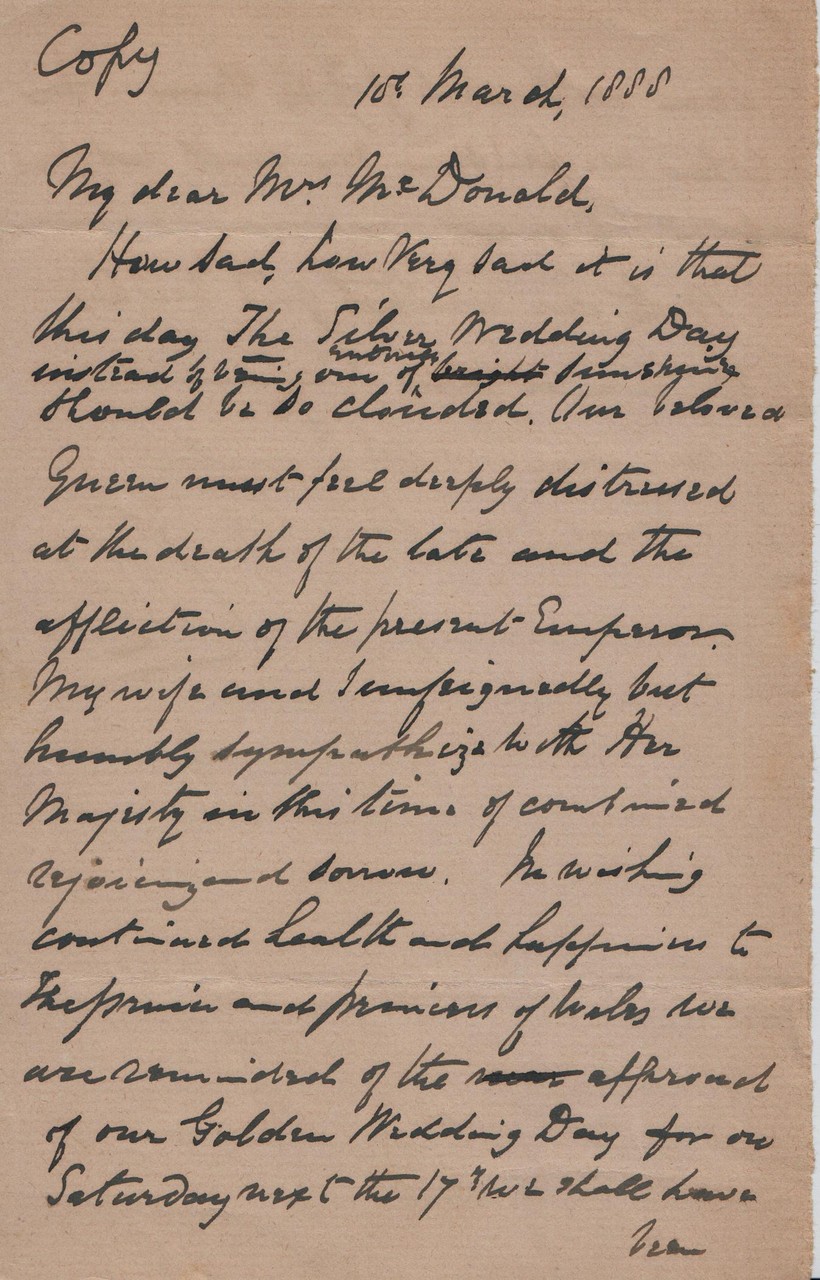 Copy
10th March, 1888
My dear Mrs. McDonald,
How sad, how very sad it is that
this day The Silver Wedding Day
instead of being one of bright sunshine
should be so clouded. Our beloved
Queen must feel deeply distressed
at the death of the late and the
affliction of the present Emperor.
My wife and I unfeignedly but
humbly sympathize with Her
Majesty in this time of combined
rejoicing and sorrow. In wishing
continued health and happiness to
The prince and princess of Wales we
are reminded of the near approach
of our Golden Wedding Day for on
Saturday next the 17th we shall have
been